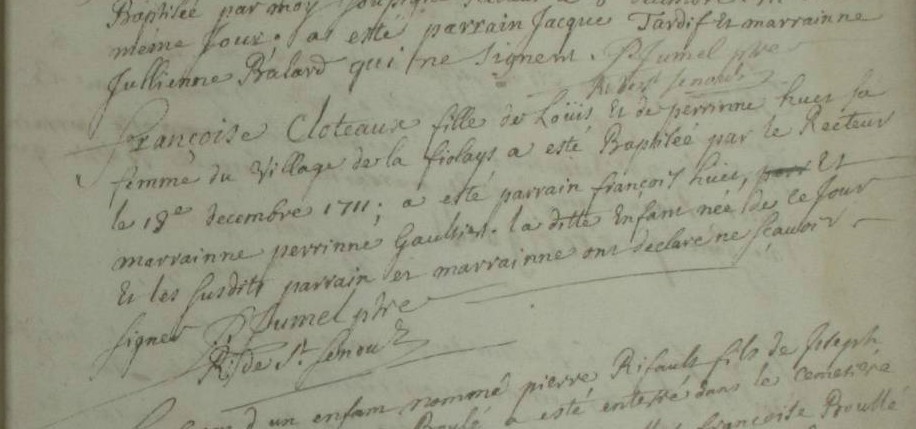 Baptisée par moy
même jour. as esté parrain Jacque Tardif et marrainne
Jullienne Balard qui ne signent. P Jumel ptre
Françoise Cloteaux fille de Loüis et de perrinne huet sa
femme du village de la fiolays a esté Baptisée par le Recteur
le 18e decembre 1711; a esté parrain françois huet, et
marrainne perrinne Gaultier. la ditte Enfant née de ce jour
Et les susdits parrain et marrainne ont declaré ne sçavoir
signer P Jumel ptre
R. de St Senou
d'un enfant nommé pierre Rifault fils de Joseph
a esté enterré dans le cemetiere
françoise Boullé